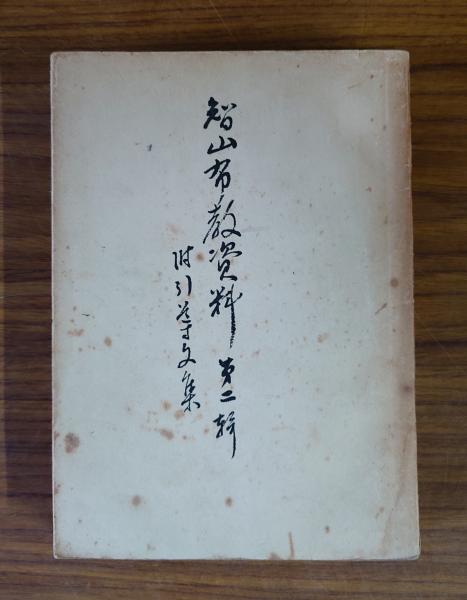 智山布教資料 第二輯
附引導文集